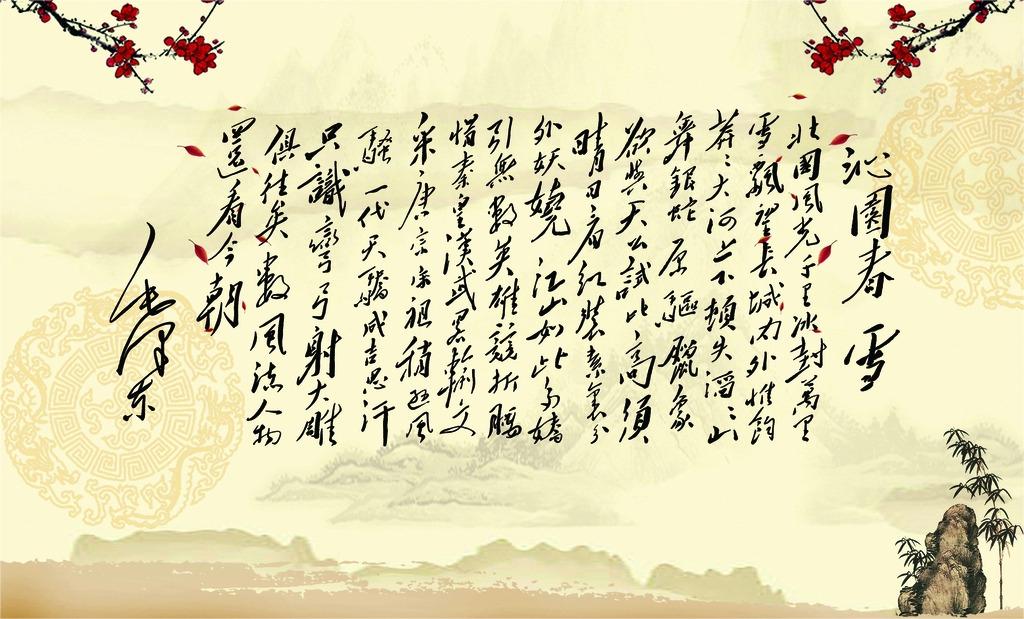 沁園春 雪
北國風光千里冰封萬里
雪飄望長城內外惟餘
莽〻大河上下頓失滔〻山
舞銀蛇原驅臘象
欲與天公試比高須
晴日看紅裝素裹分
外妖嬈江山如此多嬌
引無數英雄競折腰
惜秦皇漢武略輸文
采唐宗宋祖稍遜風
騷一代天驕成吉思汗
只識彎弓射大雕
俱往矣數風流人物
還看今朝
毛澤東